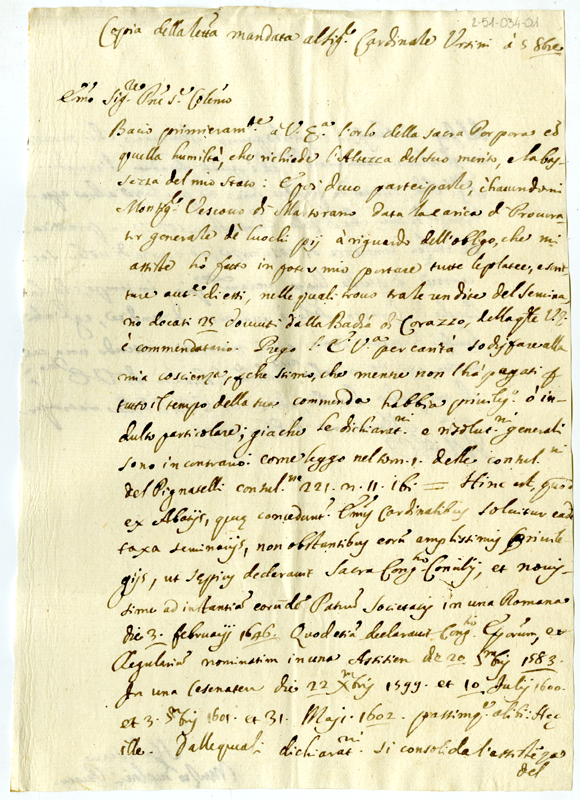 2-51-034-01
Copia della lettera mandata al Sig.r Cardinale Ursini à 5 8bre
Em.mo Sig.re P.ne S. Colen.mo
Bacio primieram.te à V. E.za l'orlo della sacra Porpora cõ
quella humiltà, che richiede l'Altezza del suo merito, e la bas
sezza del mio stato: E poi devo participarle, ch'havendomi
Mons.r Vescovo di Martorano data la carica di Procura
tor generale de luochi pij à riguardo dell'obligo, che mi
assiste hò fatto in poter mio portare tutte le platee, e scrit
ture di essi, nelle quali trovo trale rendite del Semina
rio docati 25 dovuti dalla Badia di Corazzo, della q.le
è commendatario. Prego l'E. V.a per carità sodisfare alla
mia coscienza, che stimo, che mentre non l'hà pagati p
tutto il tempo della sua commenda habbia privileg. ò in-
dulto particolare; giache le dichiarat.ni e risolut.ni generali
sono in contrario. come leggo nel tom. 1. delle consul.ni
del Pignatelli consul.ne 221. n. 11. ibi = Hinc est, quod
ex Abatijs, quae conceduntr Em.is Cardinalibus solvitur ead
taxa seminarijs, non obstantibus eorũ amplissimis Privile
gijs, ut sepius declaravit Sacra Cong. Concilij, et novis
sime ad instantiã eorũdẽ Patrũ Societatis in una Romana
die 3. februarij 1646. Quod etiã declaravit Cong. Eporum, et
Regulariũ nominatim in una Asisien die 20 Xbris 1583.
In una Cesenaten die 22 Xbris 1599. et 10. Julij 1600.
et 3. 1601. et 31. Maji. 1602. passimq alibi: Hec
ille. Dalle quali dichiarat.ni si consolida l'assist
del